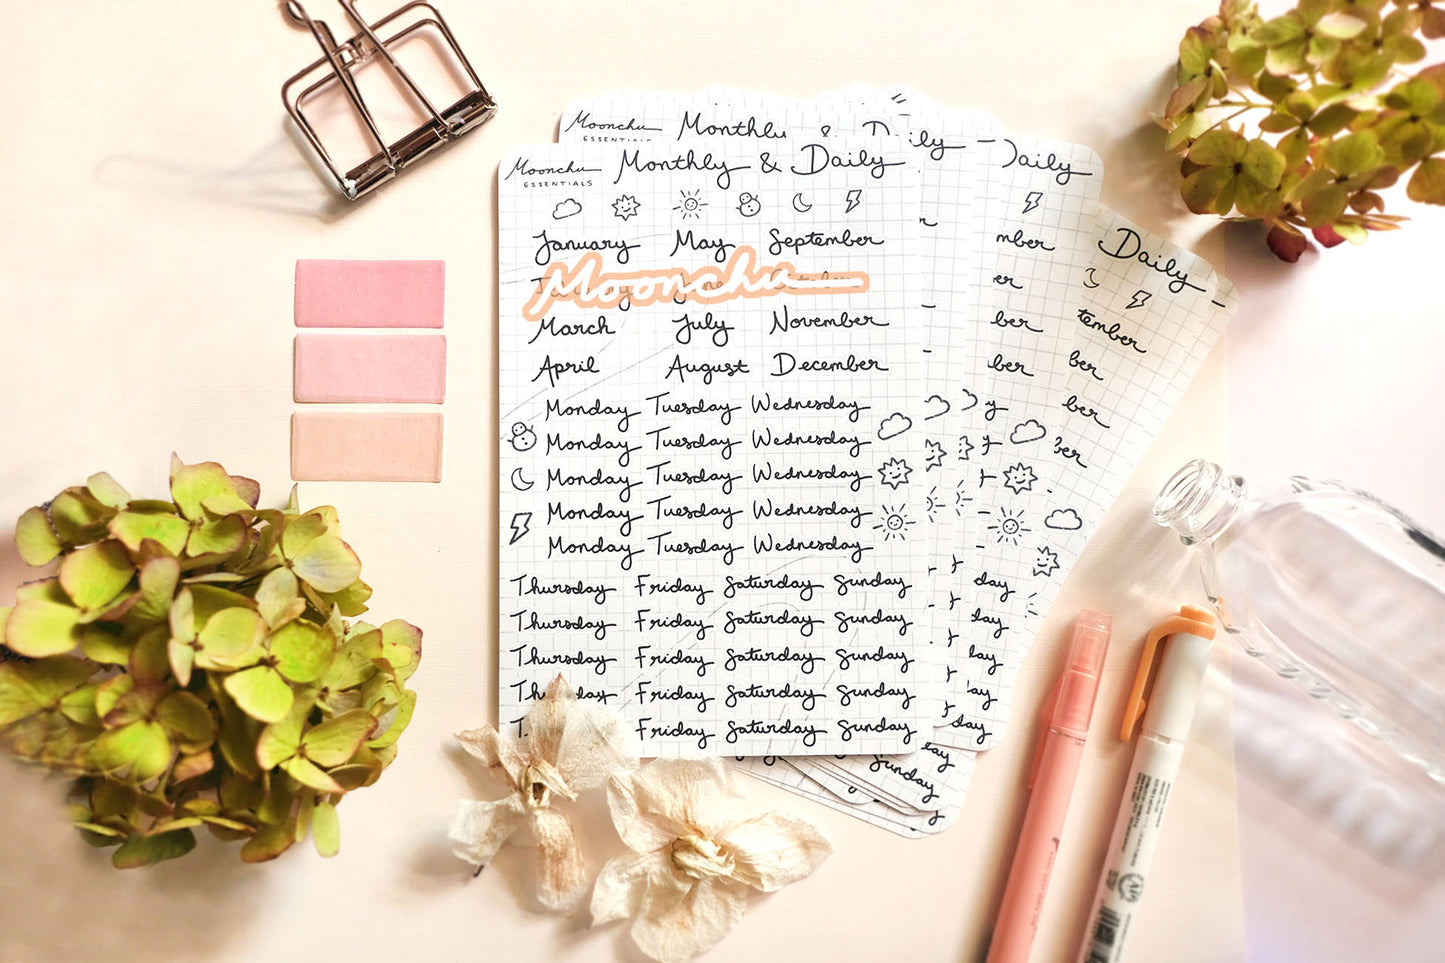 Moonchu
ESSENTIALS
Monthly & Daily
January May September
Moonchu
March July November
April August December
Monday Tuesday Wednesday
Monday Tuesday Wednesday
Monday Tuesday Wednesday
Monday Tuesday Wednesday
Monday Tuesday Wednesday
Thursday Friday Saturday Sunday
Thursday Friday Saturday Sunday
Thursday Friday Saturday Sunday
Friday Saturday Sunday
Friday Saturday Sunday
Moonchu
ESSENTIALS
Monthly & Daily
Daily
mber
ber
ber
day
Daily
tember
ber
ber
ber
Sunday